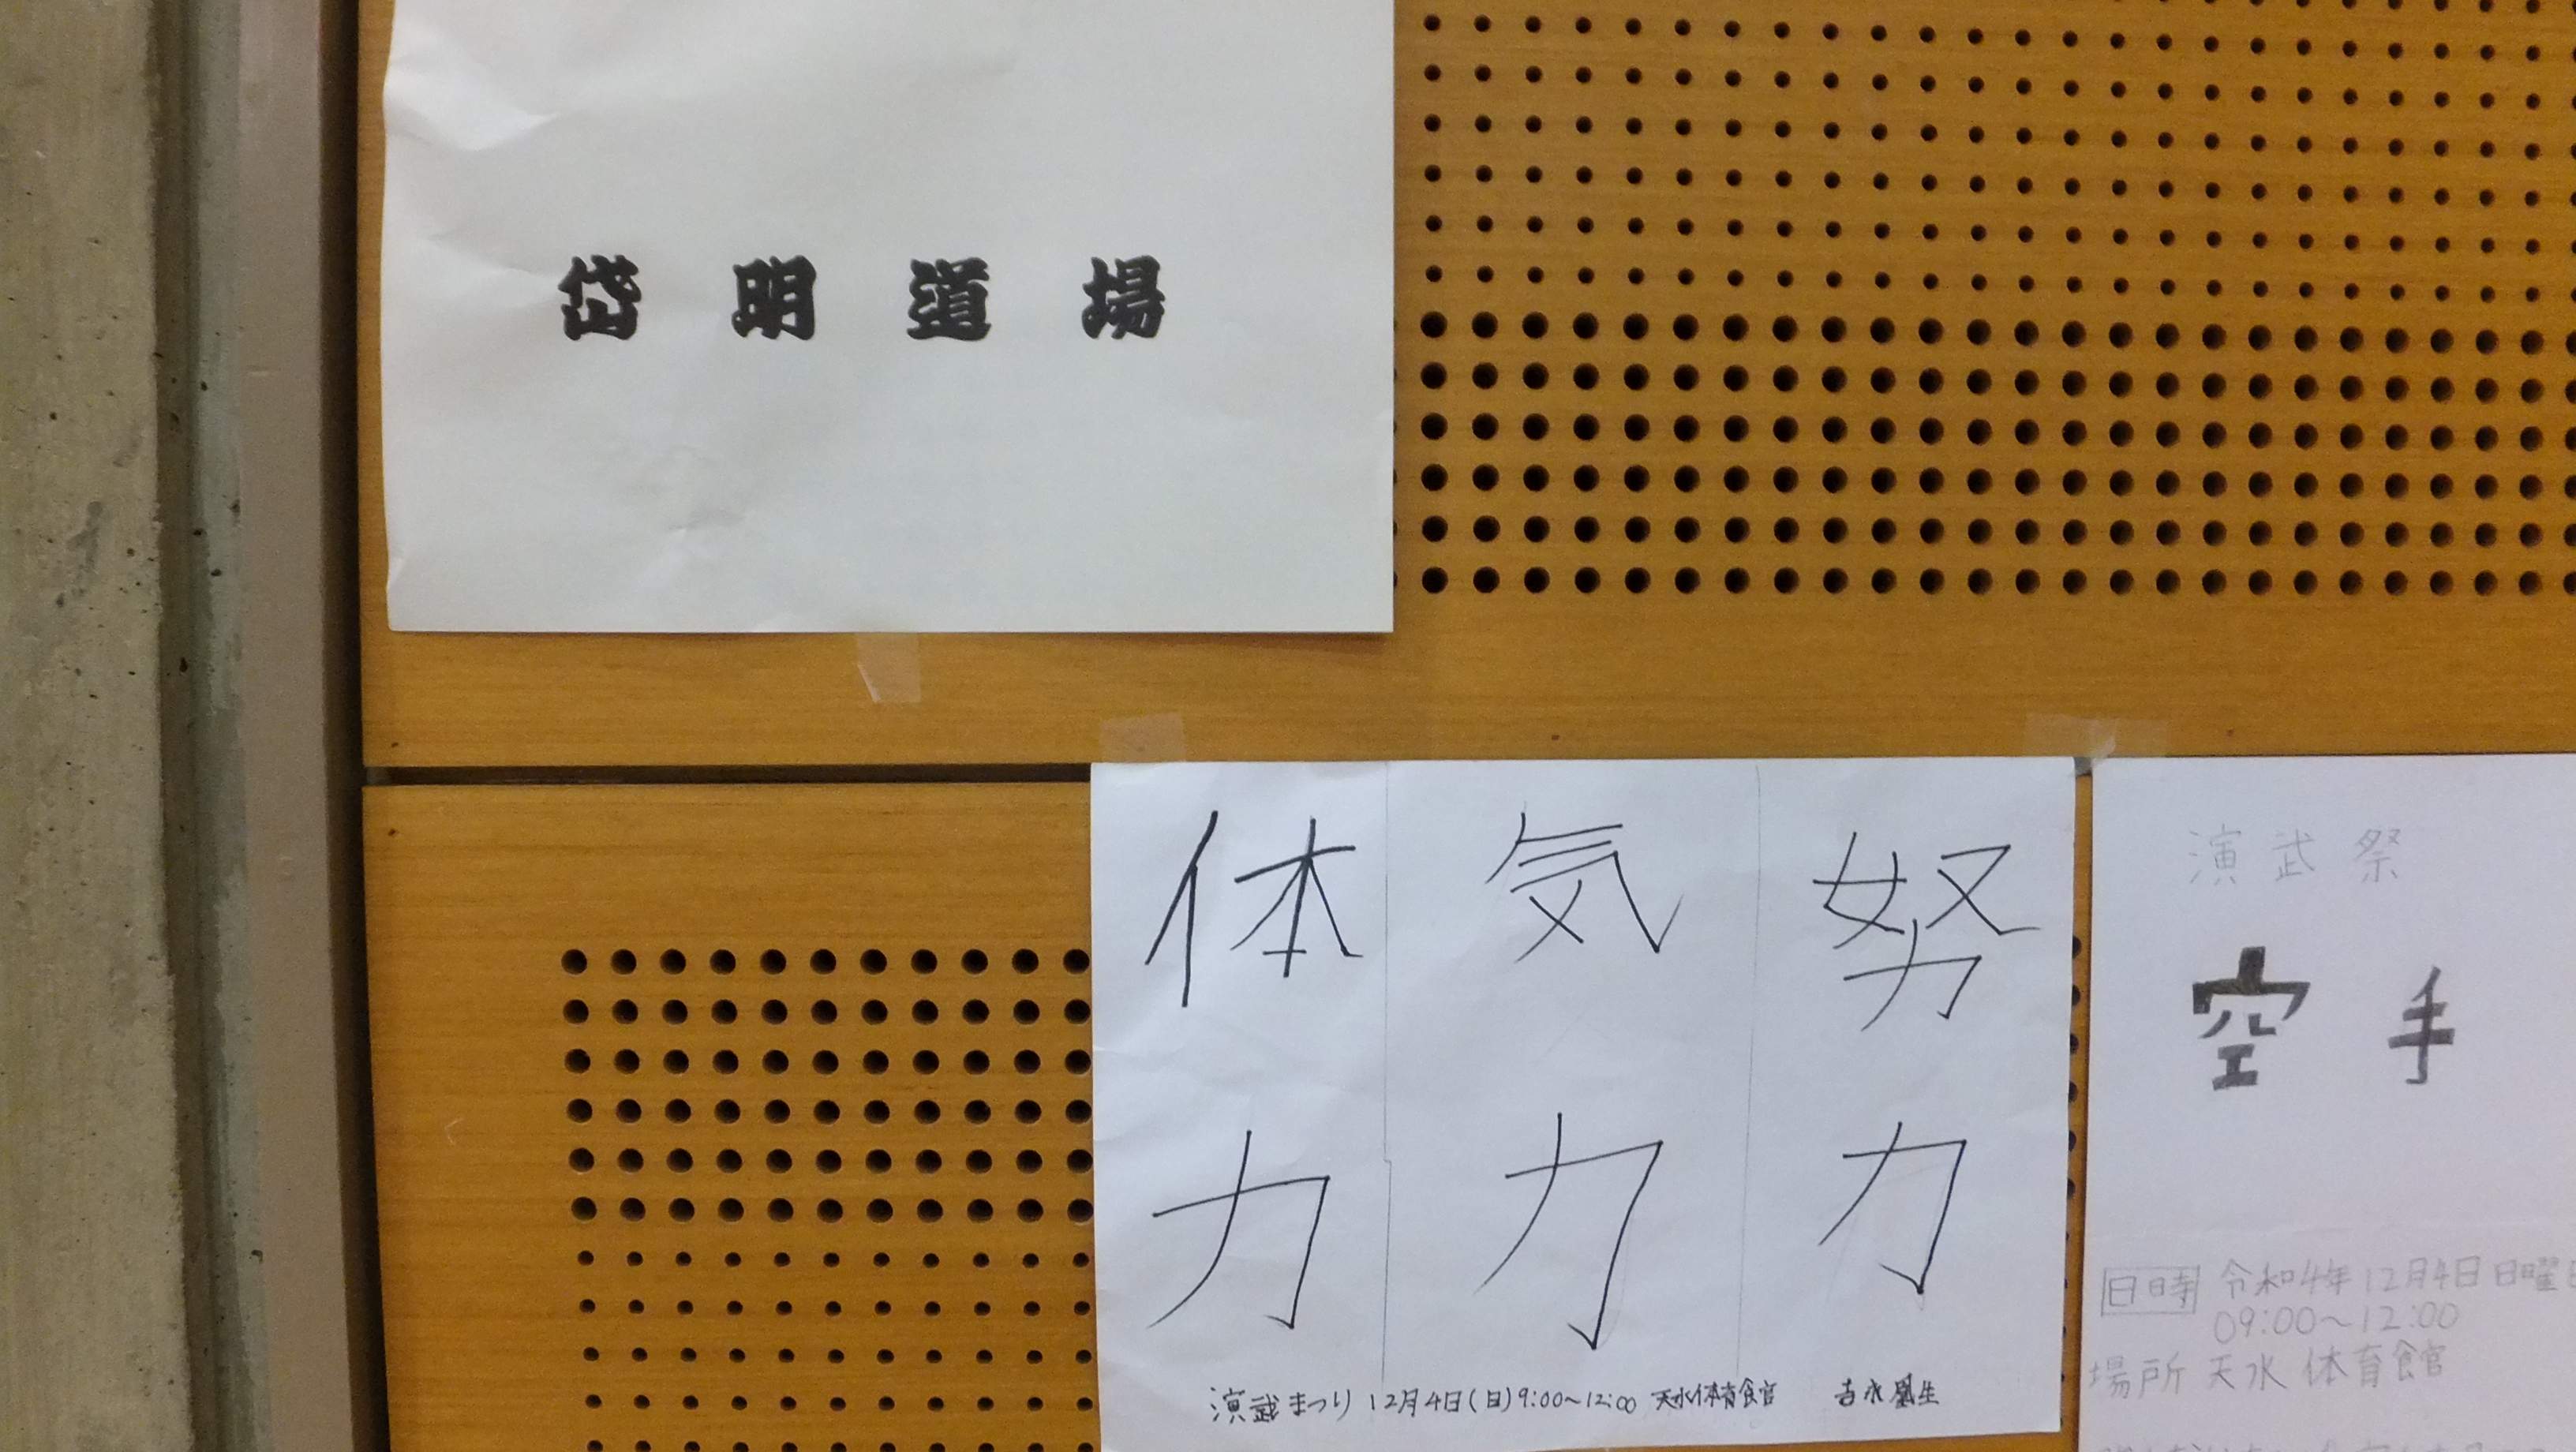 岱明道場
体力
気力
努力
演武まつり 12月4日(日)9:00~12:00 天水体育館 吉永凰生
演武祭
空手
日時 令和4年12月4日日曜日
09:00~12:00
場所 天水体育館